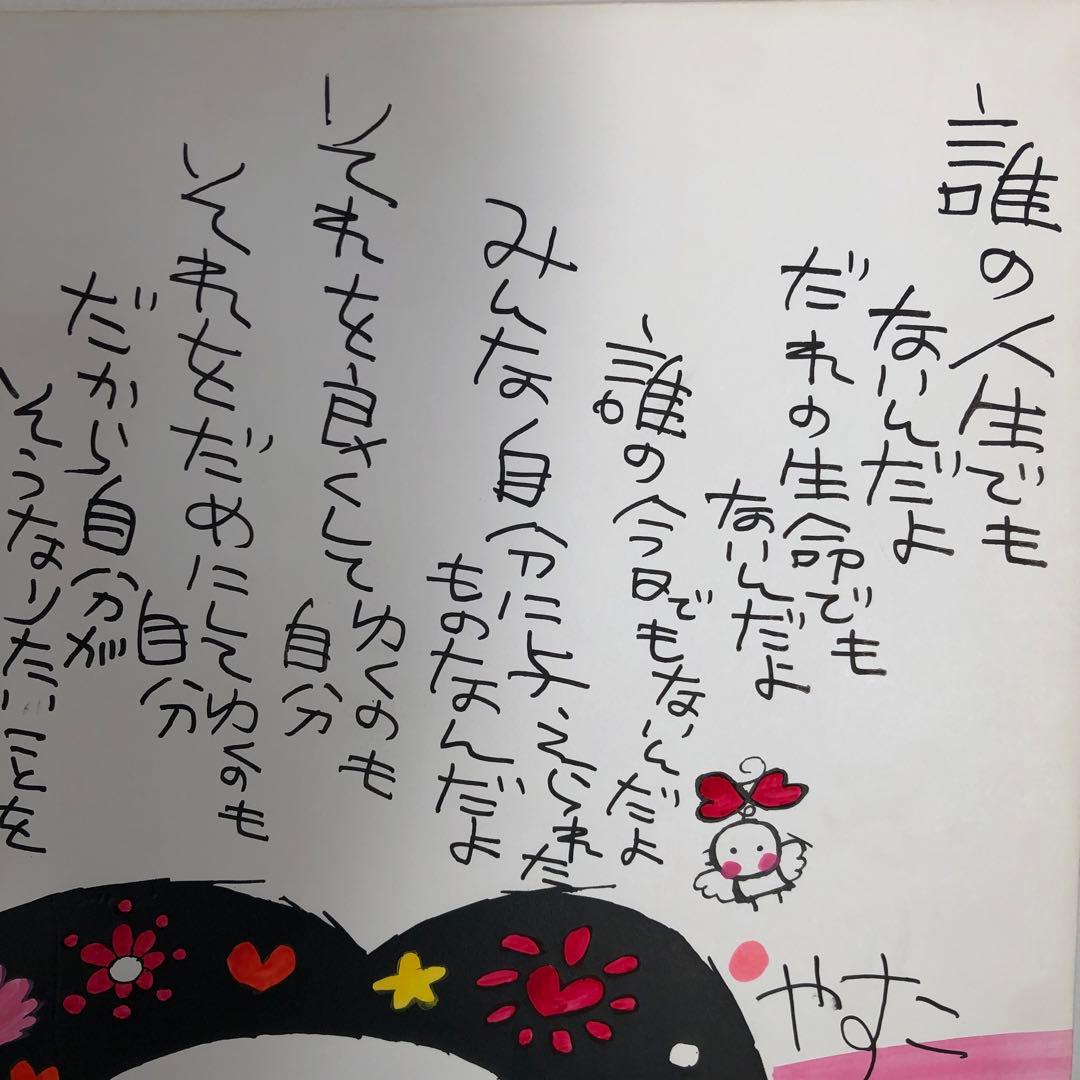 誰の人生でも
ないんだよ
だれの生命でも
ないんだよ
誰の今日でもないんだよ
みんな自分に与えられた
ものなんだよ
それを良くしてゆくのも
自分
それをだめにしてゆくのも
自分
だから自分が
そうなりたいことを
やすこ